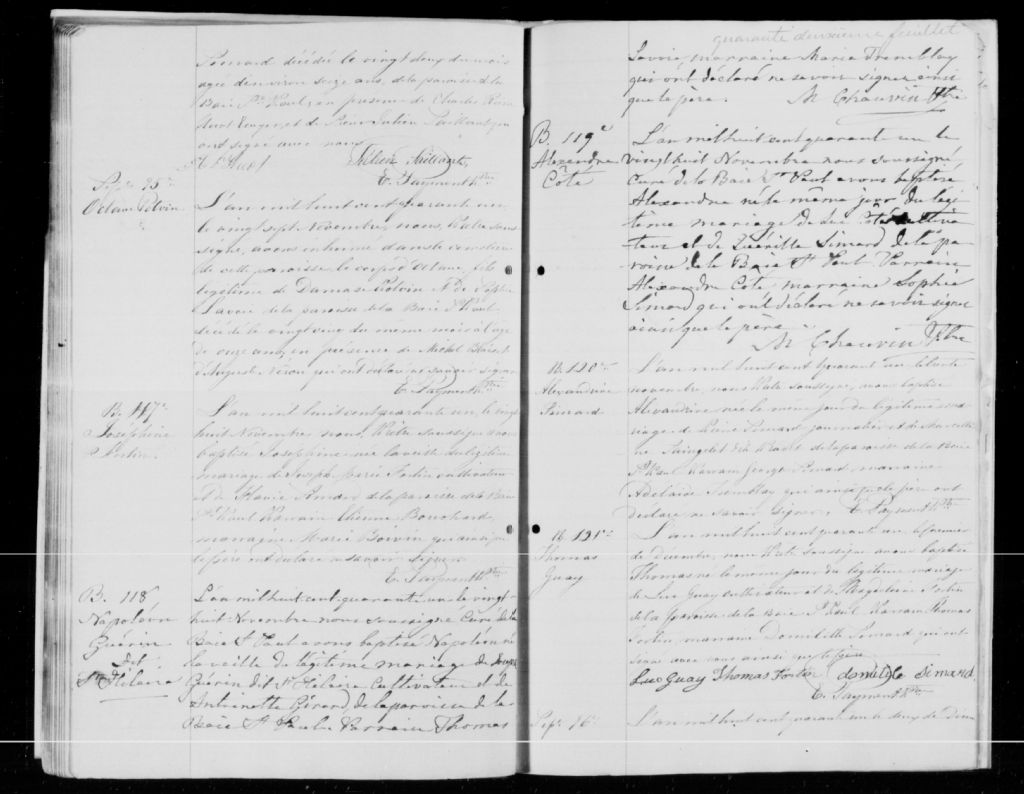 Simard décédé le vingt deux du mois
agée d'environ seize ans de la paroisse de la
Baie St Paul, en presence de Charles
et de
ont signé avec nous
E. Payment Ptre
Sep. 25e
Octave Potvin
L'an mil huit cent quarante un
le vingt sept Novembre, nous, Prêtre sous-
signé, avons inhumé dans le cimetière
de cette paroisse le corps d'Octave, fils
légitime de Damase Potvin et de
Savoie de la paroisse de la Baie St Paul
décédé le vingt cinq du même mois à l'age
de onze ans, en présence de Michel
d'Auguste qui ont déclaré ne savoir signer
E. Payment Ptre
B. 117e
Joséphine
Fortin
L'an mil huit cent quarante un, le vingt
huit Novembre nous, Prêtre soussigné avons
baptisé Josephine née la veille du légitime
mariage de Joseph Fortin cultivateur
et de Flavie Simard de la paroisse de la Baie
St Paul Parrain Etienne Bouchard,
marraine Marie Boivin qui ainsi que
le père ont déclaré ne savoir signer
E. Payment Ptre
B. 118
Napoléon
Guérin
dit
St Hilaire
L'an mil huit cent quarante un le vingt
huit Novembre nous soussigné Curé de la
Baie St Paul avons baptisé Napoléon né
la veille du légitime mariage de
Guérin dit St Hilaire Cultivateur et de
Antoinette Girard de la paroisse de la
Baie St Paul Parrain Thomas
quarante deuxième feuillet
Savoie, marraine Marie Tremblay
qui ont déclaré ne savoir signer ainsi
que le père. M Chauvin Ptre
B. 119e
Alexandre
Côté
L'an mil huit cent quarante un le
vingt huit Novembre nous soussigné
Curé de la Baie St Paul avons baptisé
Alexandre né le même jour du légi-
time mariage de Côté
et de Simard de la pa-
roisse de la Baie St Paul Parrain
Alexandre Côté marraine Sophie
Simard qui ont déclaré ne savoir signer
ainsi que le père
M Chauvin Ptre
B. 120e
Alexandrine
Simard
L'an mil huit cent quarante un le trente
novembre, nous Prêtre soussigné, avons baptisé
Alexandrine née le même jour du légitime ma-
riage de Simard journalier et de
de la paroisse de la Baie
St Paul Parrain George Simard marraine
Adelaide Tremblay qui ainsi que le père ont
déclaré ne savoir signer. E. Payment Ptre
B. 121e
Thomas
Guay
L'an mil huit cent quarante un le premier
de décembre, nous Prêtre soussigné avons baptisé
Thomas né le même jour du légitime mariage
de Luc Guay cultivateur et de Magdeleine Fortin
de la paroisse de la Baie St Paul Parrain Thomas
Fortin, marraine Domitilde Simard qui ont
signé avec nous ainsi que le père
Luc Guay Thomas Fortin domitilde Simard
E. Payment Ptre
Sep. 26e
L'an mil huit cent quarante un le deux de Décem